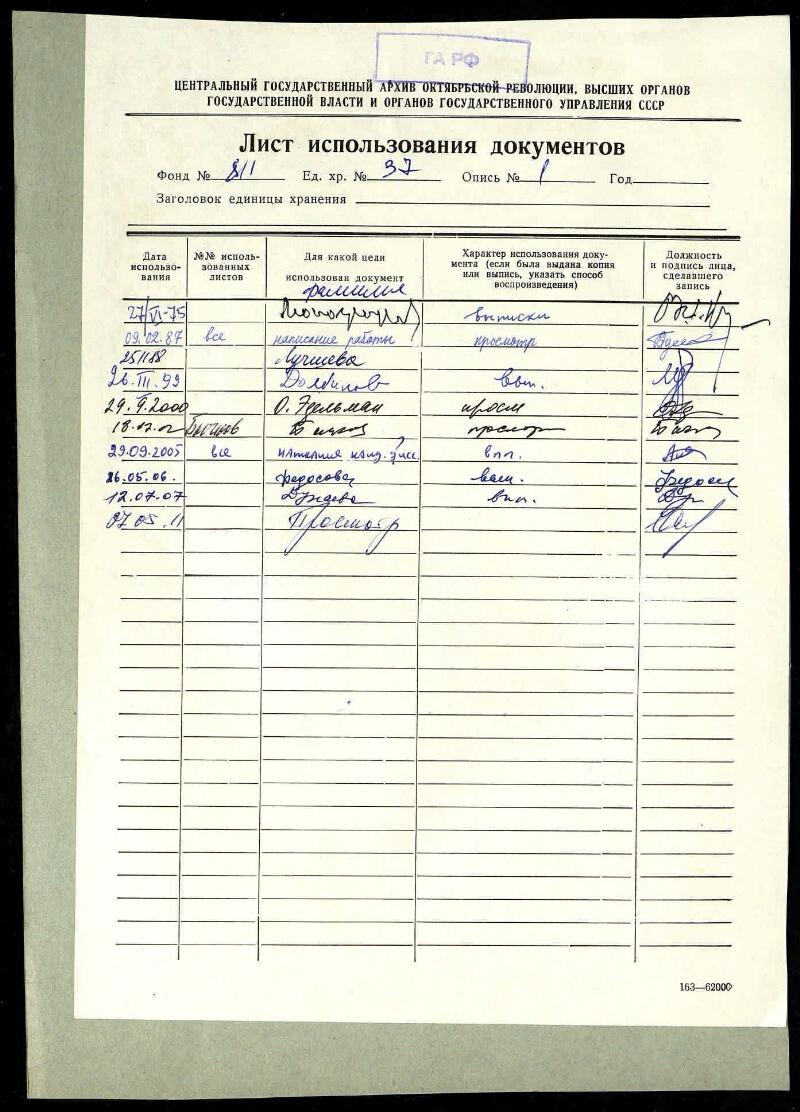 ГА РФ
ЦЕНТРАЛЬНЫЙ ГОСУДАРСТВЕННЫЙ АРХИВ ОКТЯБРЬСКОЙ РЕВОЛЮЦИИ, ВЫСШИХ ОРГАНОВ
ГОСУДАРСТВЕННОЙ ВЛАСТИ И ОРГАНОВ ГОСУДАРСТВЕННОГО УПРАВЛЕНИЯ СССР
Лист использования документов
Фонд № 811 Ед. хр. № 37 Опись № 1 Год
Заголовок единицы хранения
Дата использо-вания
№№ исполь-зованных листов
Для какой цели использован документ
фамилия
Характер использования доку-мента (если была выдана копия или выпись, указать способ воспроизведения)
Должность и подпись лица, сделавшего запись
27/VI-75 выписки
09.02.87 все написание работы просмотр
25 11 88
26.III.99 Долбилов вып.
29.V.2000 О. Эдельман просм
18.02.02 просмотр
29.09.2005 все написание канд. дисс. вып.
26.05.06. Федосова вып.
12.07.07 вып.
07 05 11 Просмотр
163—62000